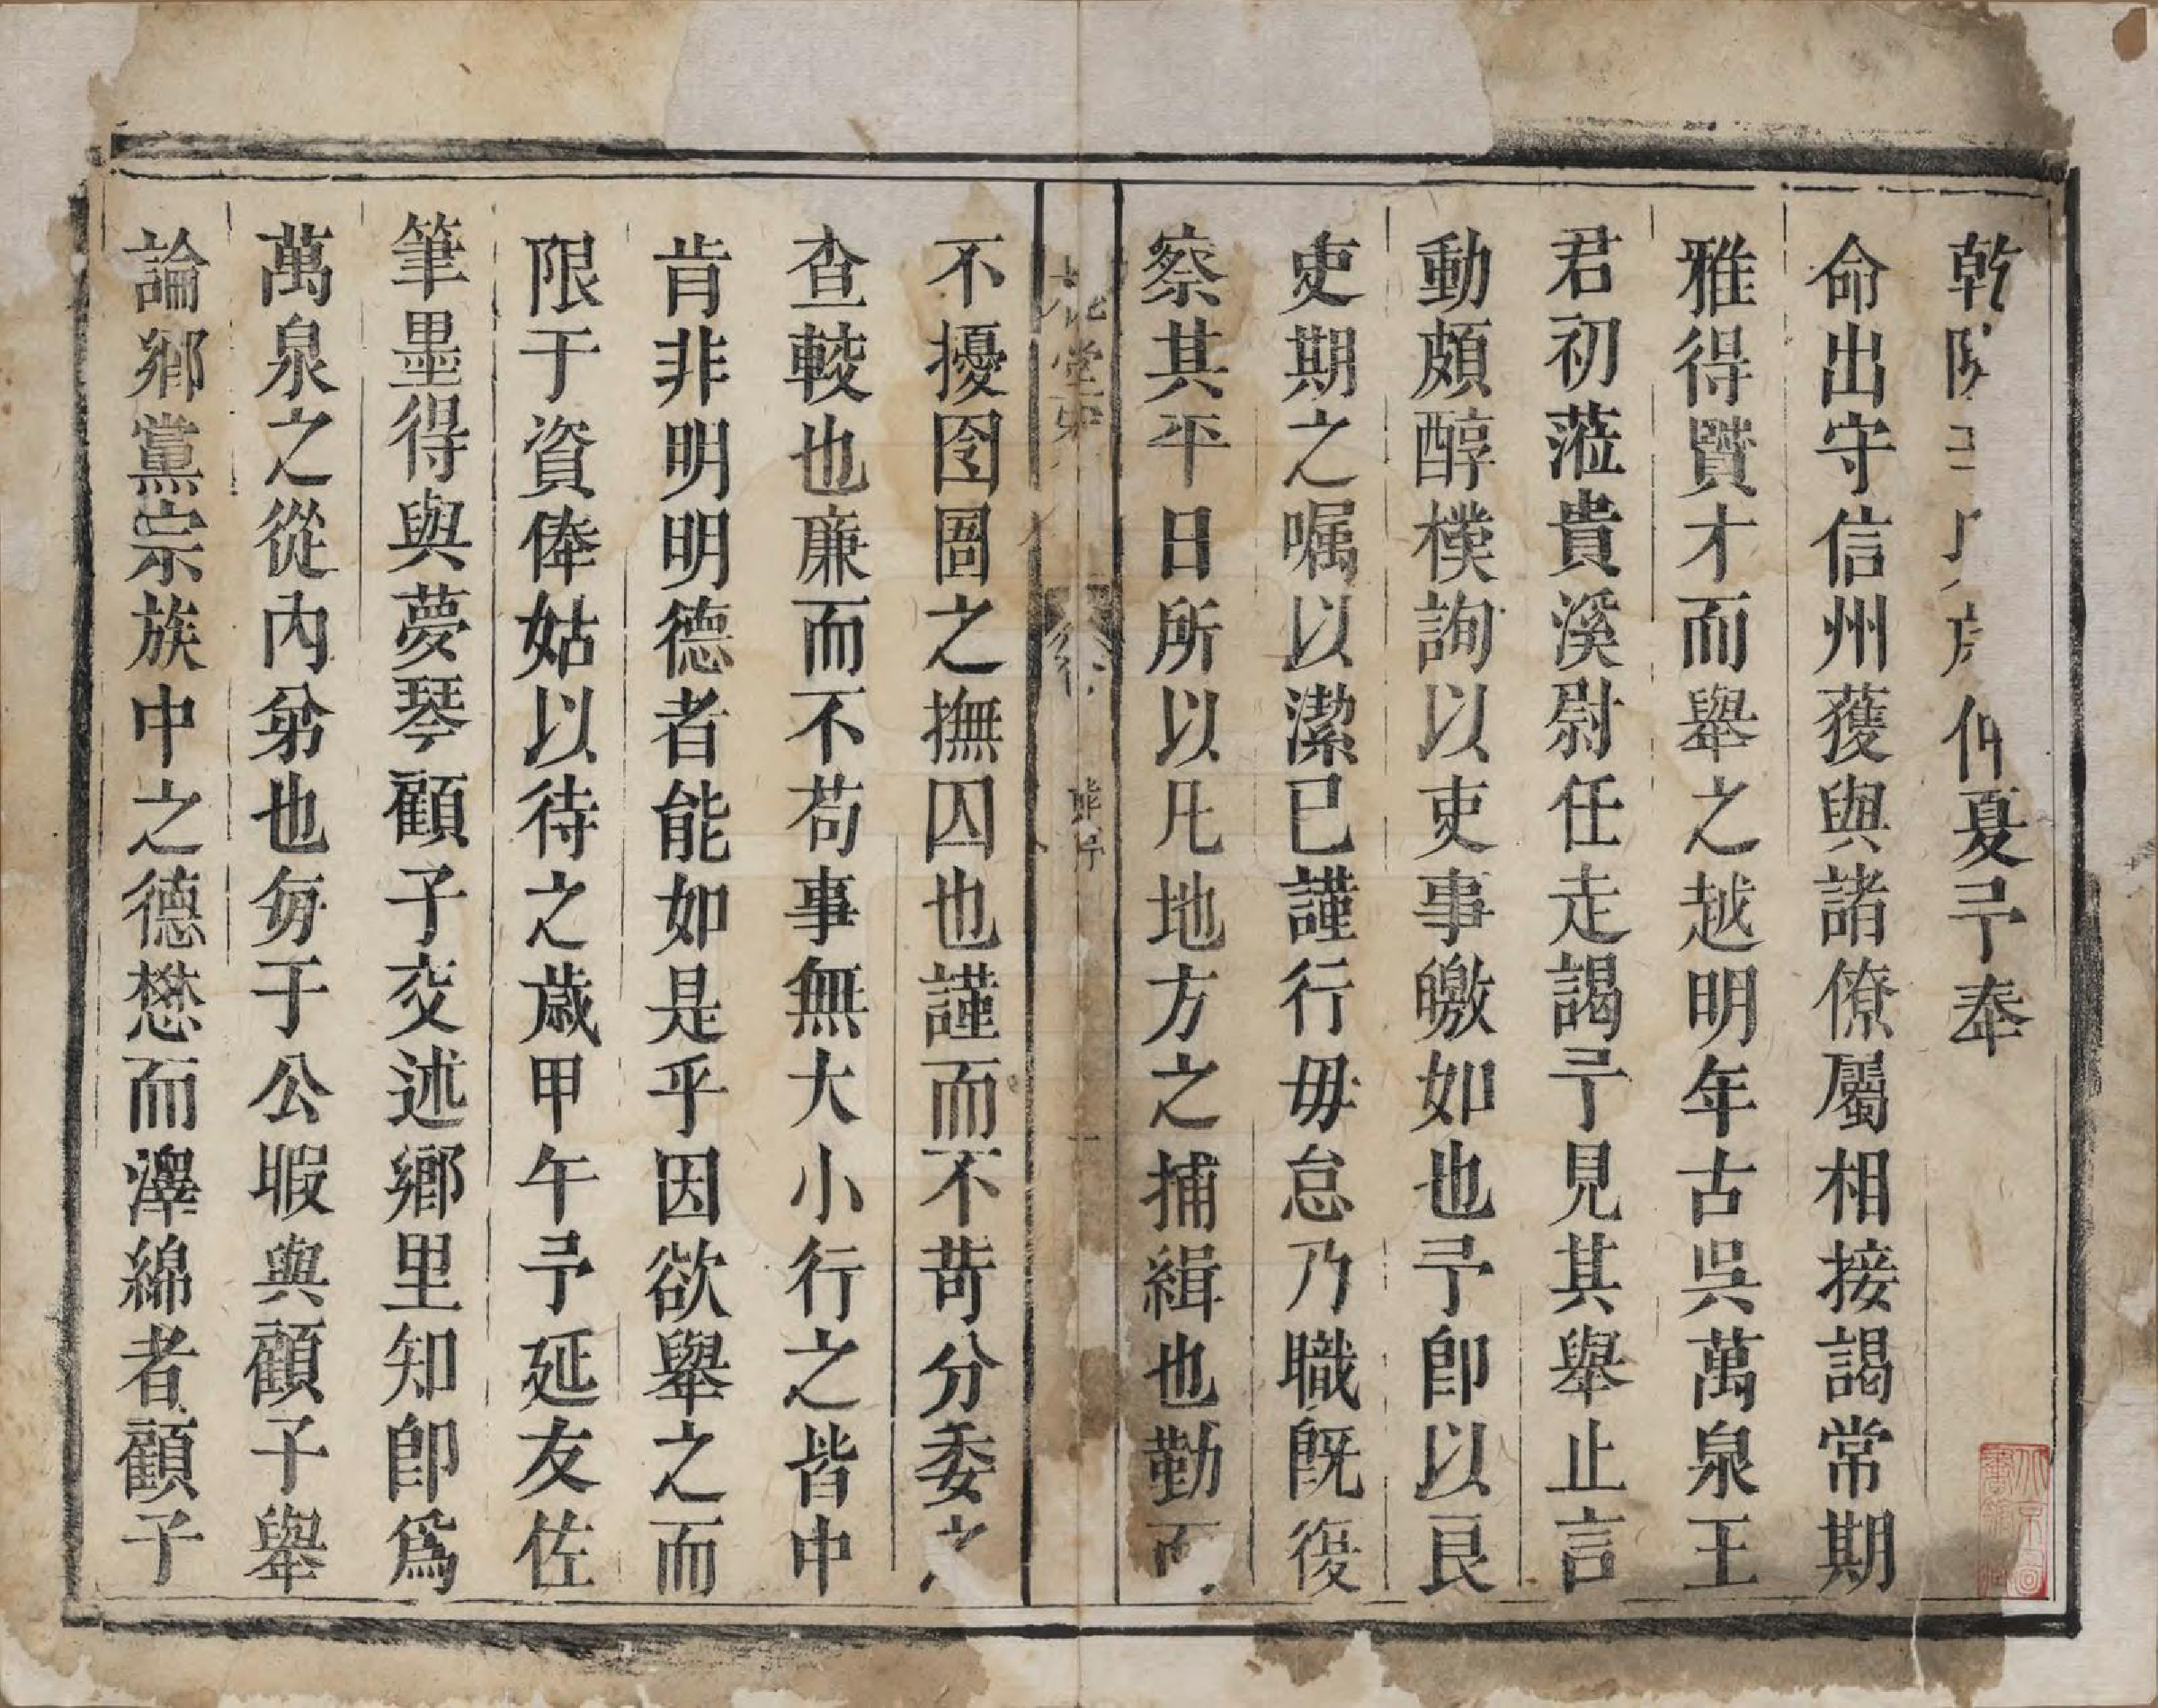 乾隆 仲夏予奉
命出守信州獲與諸僚屬相接謁常期
雅得賢才而舉之越明年古吳萬泉王
君初蒞貴溪尉任走謁予見其舉止言
動頗醇樸詢以吏事皦如也予卽以良
吏期之嘱以潔已謹行毋怠乃職旣復
察其平日所以凡地方之捕緝也勤而
不擾囹圄之撫囚也謹而不苛分委之
查較也廉而不苟事無大小行之皆中
肯非明明德者能如是乎因欲舉之而
限于資俸姑以待之歲甲午予延友佐
筆墨得與夢琴顧子交述鄉里知卽爲
萬泉之從內弟也每于公暇與顧子舉
論鄉黨宗族中之德懋而澤綿者顧子